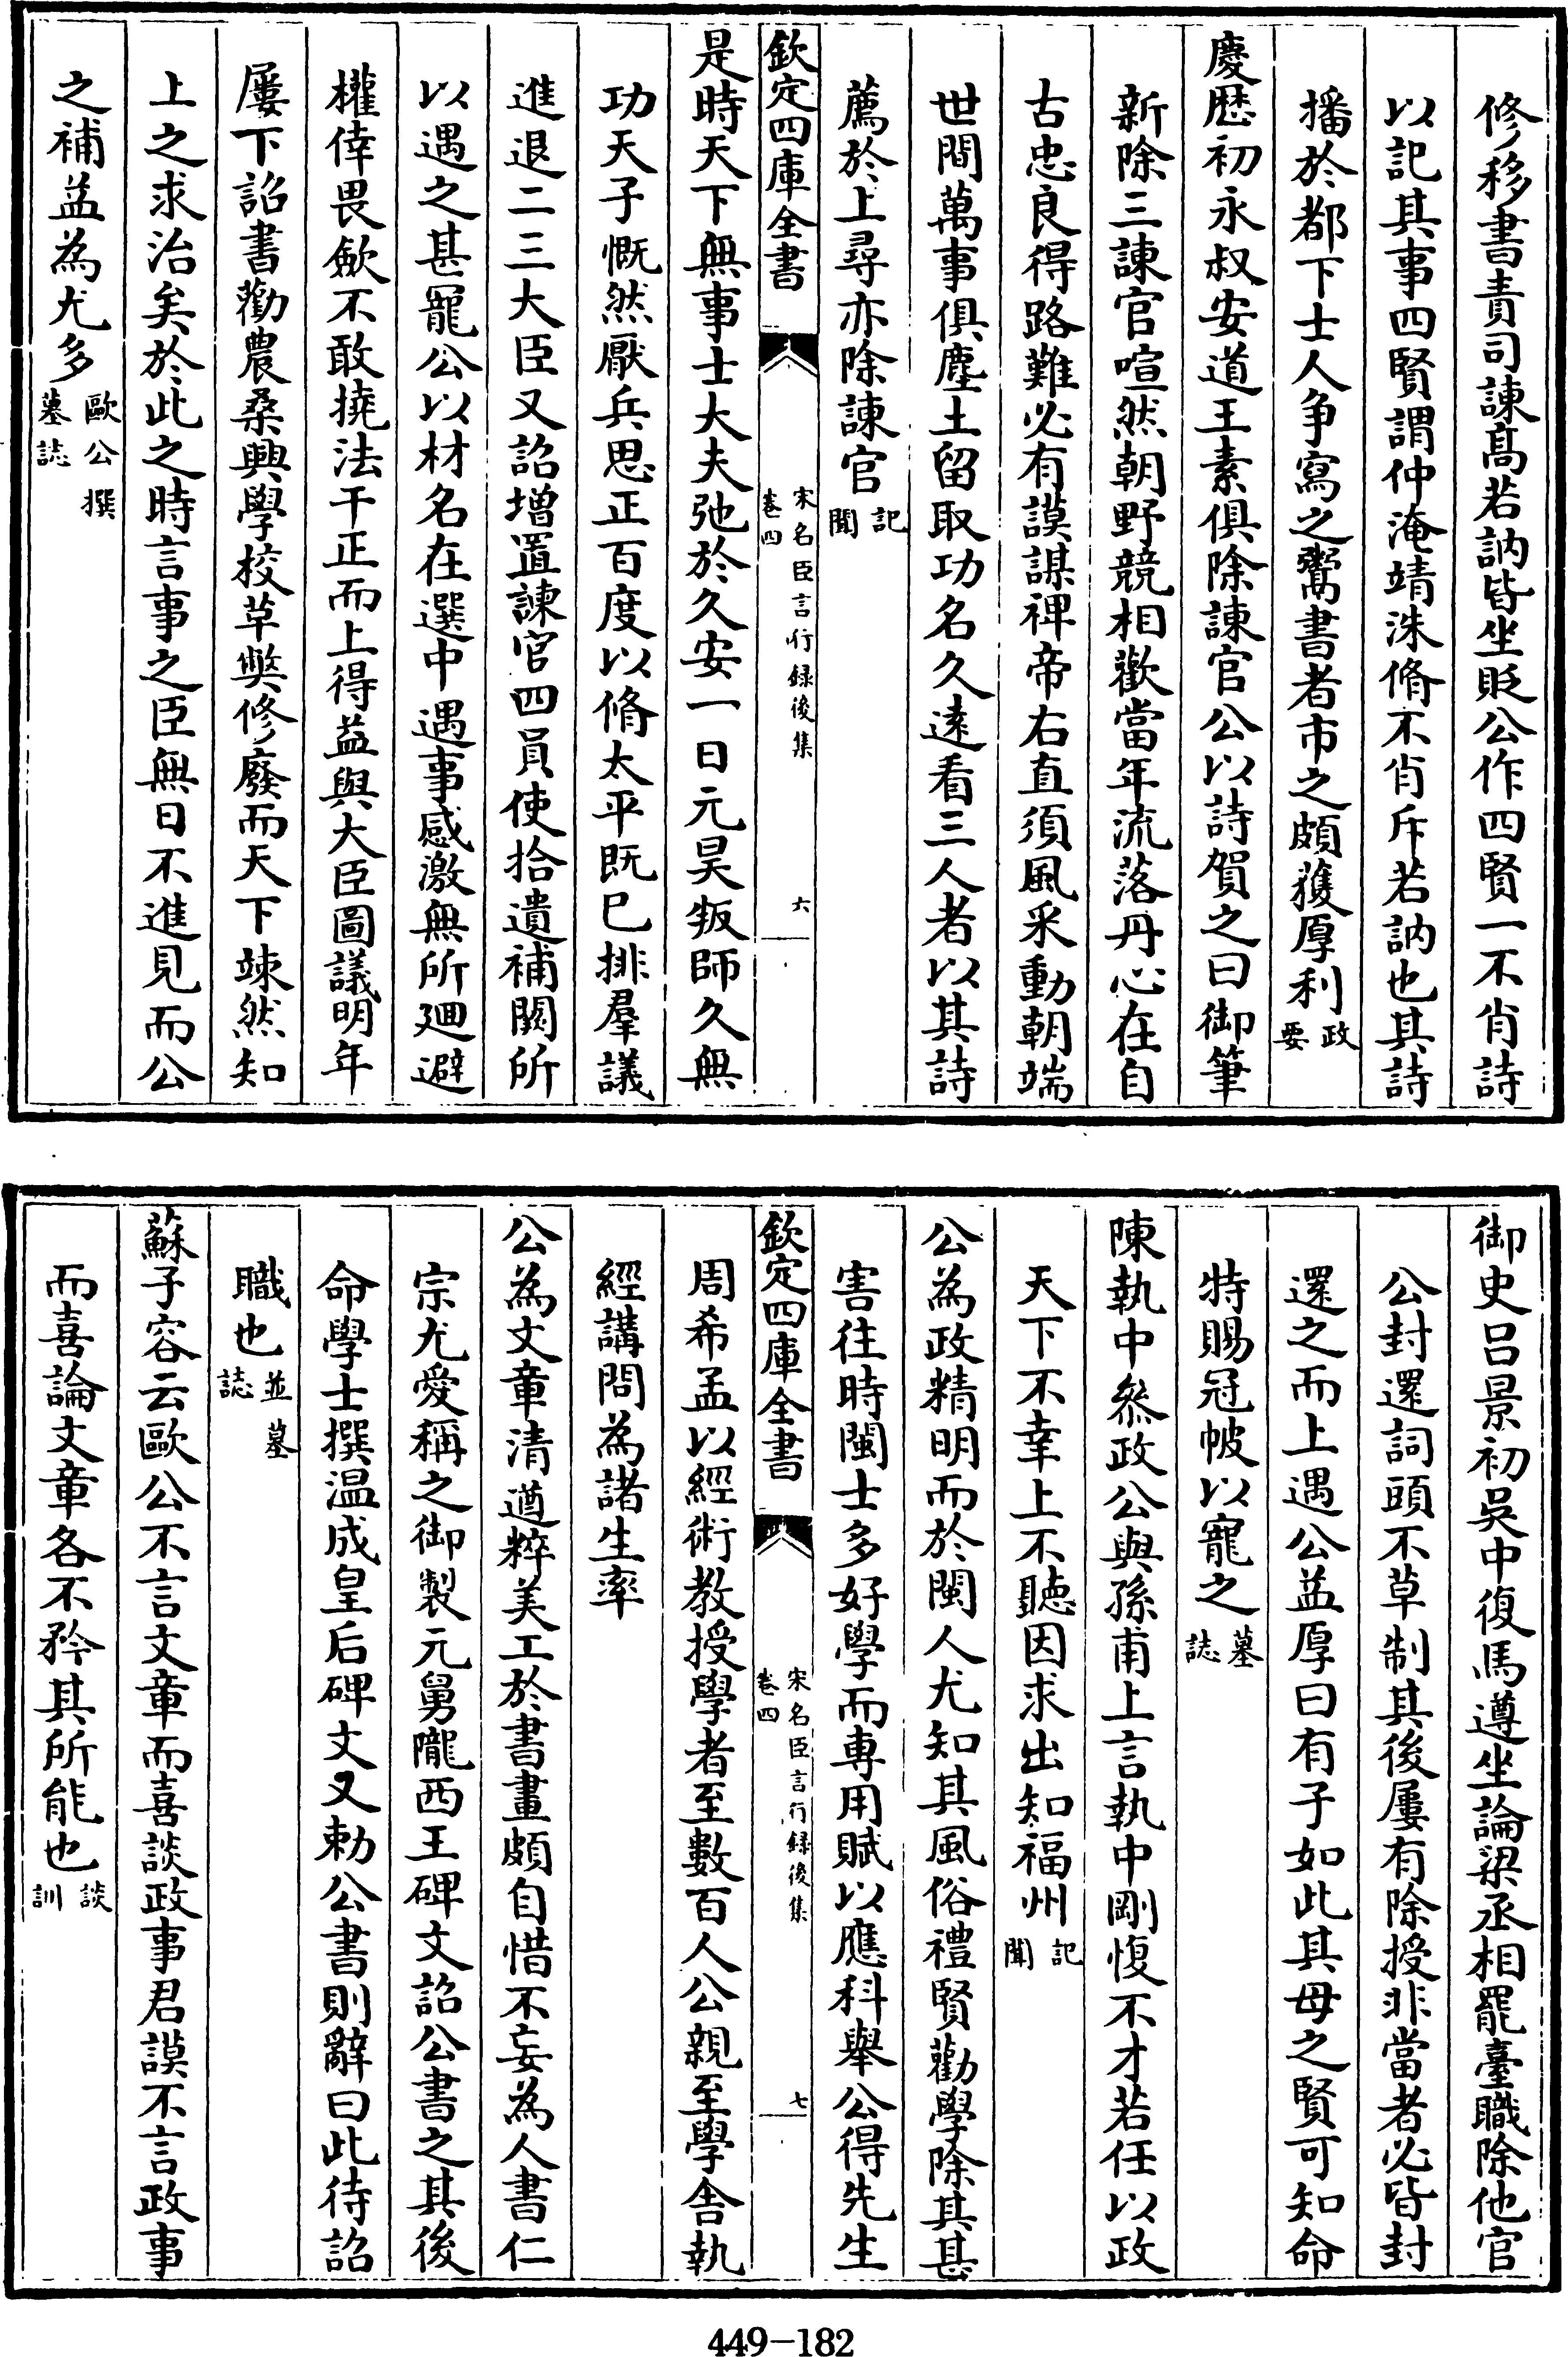 修移書責司諫髙若訥皆坐貶公作四賢一不肖詩
以記其事四賢謂仲淹靖洙脩不肖斥若訥也其詩
播於都下士人争寫之鬻書者市之頗獲厚利政要
慶歴初永叔安道王素俱除諫官公以詩賀之曰御筆
新除三諫官喧然朝野競相歡當年流落丹心在自
古忠良得路難必有謨謀禆帝右直須風采動朝端
世間萬事俱塵土留取功名久逺看三人者以其詩
薦於上尋亦除諫官記聞
欽定四庫全書
宋名臣言行録後集
卷四
六
是時天下無事士大夫弛於久安一日元昊叛師久無
功天子慨然厭兵思正百度以脩太平既已排羣議
進退二三大臣又詔增置諫官四員使拾遺補闕所
以遇之甚寵公以材名在選中遇事感激無所廻避
權倖畏歛不敢撓法干正而上得益與大臣圖議明年
屢下詔書勸農桑興學校革弊修廢而天下竦然知
上之求治矣於此之時言事之臣無日不進見而公
之補益為尤多歐公撰墓誌
御史吕景初吳中復馬遵坐論梁丞相罷臺職除他官
公封還詞頭不草制其後屢有除授非當者必皆封
還之而上遇公益厚曰有子如此其母之賢可知命
特賜冠帔以寵之墓誌
陳執中叅政公與孫甫上言執中剛愎不才若任以政
天下不幸上不聽因求出知福州記聞
公為政精明而於閩人尤知其風俗禮賢勸學除其甚
害往時閩士多好學而専用賦以應科舉公得先生
欽定四庫全書
宋名臣言行録後集
卷四
七
周希孟以經術教授學者至數百人公親至學舍執
經講問為諸生率
公為文章清遒粹美工於書畫頗自惜不妄為人書仁
宗尤愛稱之御製元舅隴西王碑文詔公書之其後
命學士撰温成皇后碑文又勅公書則辭曰此待詔
職也並墓誌
蘇子容云歐公不言文章而喜談政事君謨不言政事
而喜論文章各不矜其所能也談訓
449-182